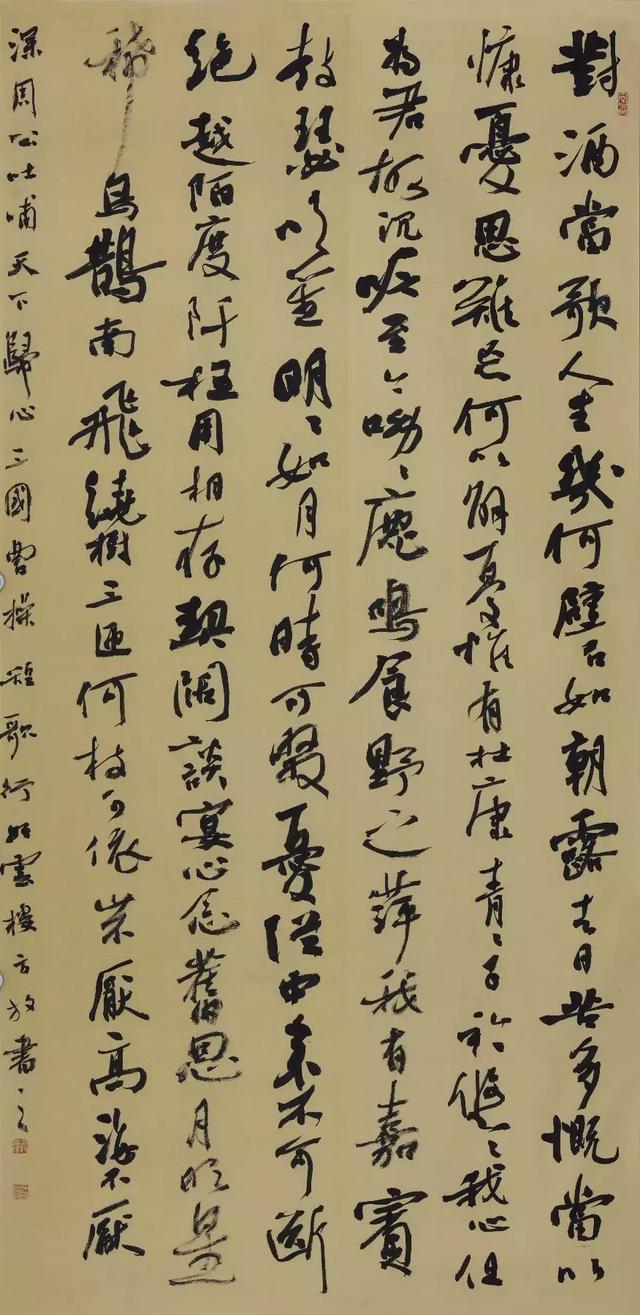 對酒當歌人生幾何譬如朝露去日苦多慨當以
慷憂思難忘何以解憂惟有杜康青々子衿悠々我心但
為君故沉吟至今呦々鹿鳴食野之苹我有嘉賓
鼓瑟吹笙明々如月何時可掇憂從中來不可斷
絕越陌度阡枉用相存契闊談宴心念舊恩月明星
稀烏鵲南飛繞樹三匝何枝可依山不厭高海不厭
深周公吐哺天下歸心三國曹操短歌行 雲樓方放書